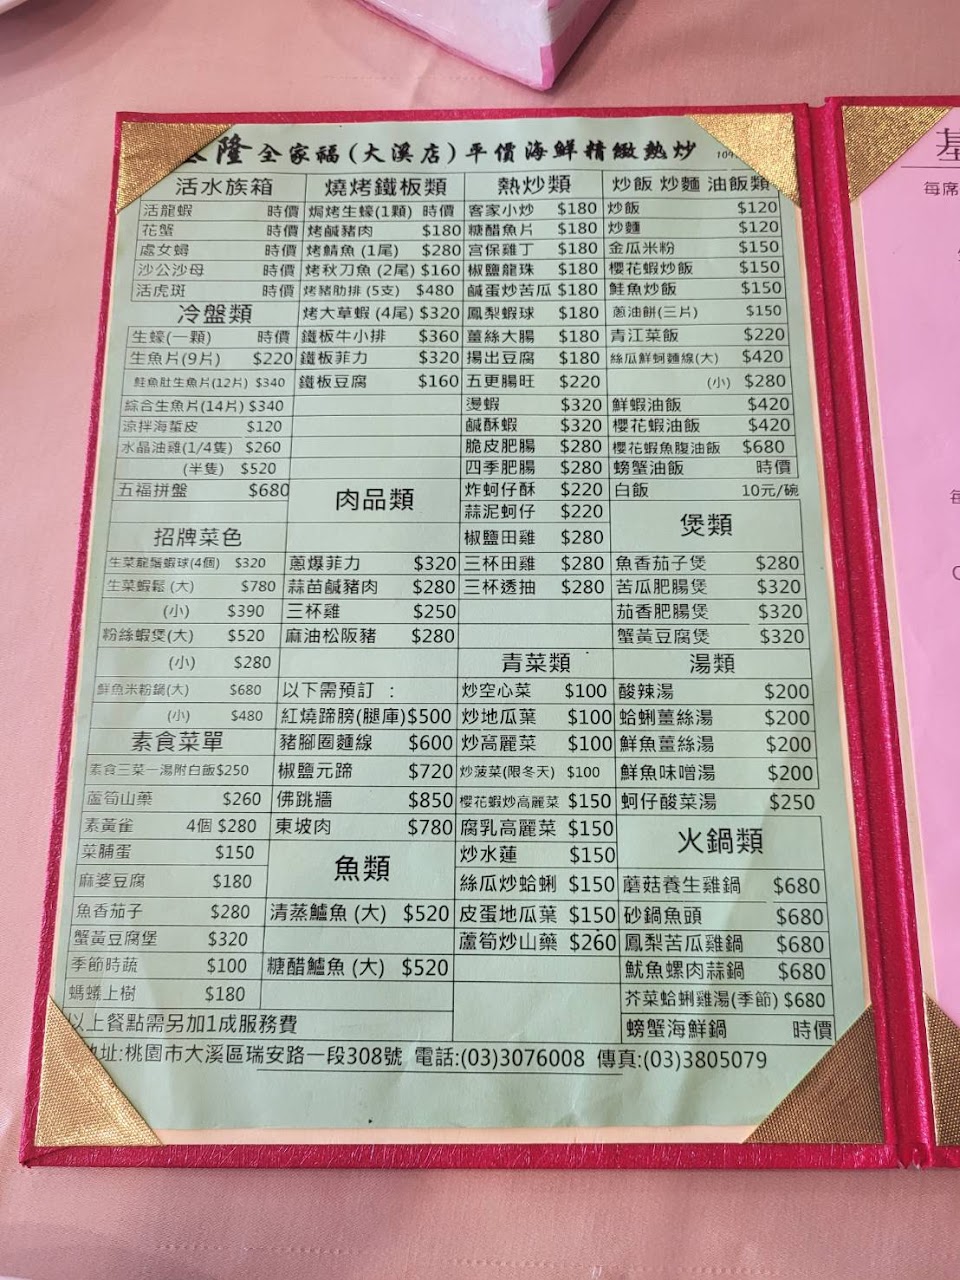 隆全家福(大溪店)平價海鮮精緻熱炒
活水族箱
活龍蝦 時價
花蟹 時價
處女蟳 時價
沙公沙母 時價
活虎斑 時價
冷盤類
生蠔(一顆) 時價
生魚片(9片) $220
鮭魚肚生魚片(12片) $340
綜合生魚片(14片) $340
涼拌海蜇皮 $120
水晶油雞(1/4隻) $260
(半隻) $520
五福拼盤 $680
招牌菜色
生菜龍鬚蝦球(4個) $320
生菜蝦鬆(大) $780
(小) $390
粉絲蝦煲(大) $520
(小) $280
鮮魚米粉鍋(大) $680
(小) $480
素食菜單
素食三菜一湯附白飯$250
蘆筍山藥 $260
素黃雀 4個 $280
菜脯蛋 $150
麻婆豆腐 $180
魚香茄子 $280
蟹黃豆腐堡 $320
季節時蔬 $100
螞蟻上樹 $180
燒烤鐵板類
焗烤生蠔(1顆) 時價
烤鹹豬肉 $180
烤鯖魚(1尾) $280
烤秋刀魚(2尾) $160
烤豬肋排(5支) $480
烤大草蝦(4尾) $320
鐵板牛小排 $360
鐵板菲力 $320
鐵板豆腐 $160
肉品類
蔥爆菲力 $320
蒜苗鹹豬肉 $280
三杯雞 $250
麻油松阪豬 $280
以下需預訂：
紅燒蹄膀(腿庫) $500
豬腳圈麵線 $600
椒鹽元蹄 $720
佛跳牆 $850
東坡肉 $780
魚類
清蒸鱸魚(大) $520
糖醋鱸魚(大) $520
熱炒類
客家小炒 $180
糖醋魚片 $180
宮保雞丁 $180
椒鹽龍珠 $180
鹹蛋炒苦瓜 $180
鳳梨蝦球 $180
薑絲大腸 $180
揚出豆腐 $180
五更腸旺 $220
燙蝦 $320
鹹酥蝦 $320
脆皮肥腸 $280
四季肥腸 $280
炸蚵仔酥 $220
蒜泥蚵仔 $220
椒鹽田雞 $280
三杯田雞 $280
三杯透抽 $280
青菜類
炒空心菜 $100
炒地瓜葉 $100
炒高麗菜 $100
炒菠菜(限冬天) $100
櫻花蝦炒高麗菜 $150
腐乳高麗菜 $150
炒水蓮 $150
絲瓜炒蛤蜊 $150
皮蛋地瓜葉 $150
蘆筍炒山藥 $260
炒飯 炒麵 油飯類
炒飯 $120
炒麵 $120
金瓜米粉 $150
櫻花蝦炒飯 $150
鮭魚炒飯 $150
蔥油餅(三片) $150
青江菜飯 $220
絲瓜鮮蚵麵線(大) $420
(小) $280
鮮蝦油飯 $420
櫻花蝦油飯 $420
櫻花蝦魚腹油飯 $680
螃蟹油飯 時價
白飯 10元/碗
煲類
魚香茄子煲 $280
苦瓜肥腸煲 $320
茄香肥腸煲 $320
蟹黃豆腐煲 $320
湯類
酸辣湯 $200
蛤蜊薑絲湯 $200
鮮魚薑絲湯 $200
鮮魚味噌湯 $200
蚵仔酸菜湯 $250
火鍋類
蘑菇養生雞鍋 $680
砂鍋魚頭 $680
鳳梨苦瓜雞鍋 $680
魷魚螺肉蒜鍋 $680
芥菜蛤蜊雞湯(季節) $680
螃蟹海鮮鍋 時價
以上餐點需另加1成服務費
地址:桃園市大溪區瑞安路一段308號 電話:(03)3076008 傳真:(03)3805079
每席